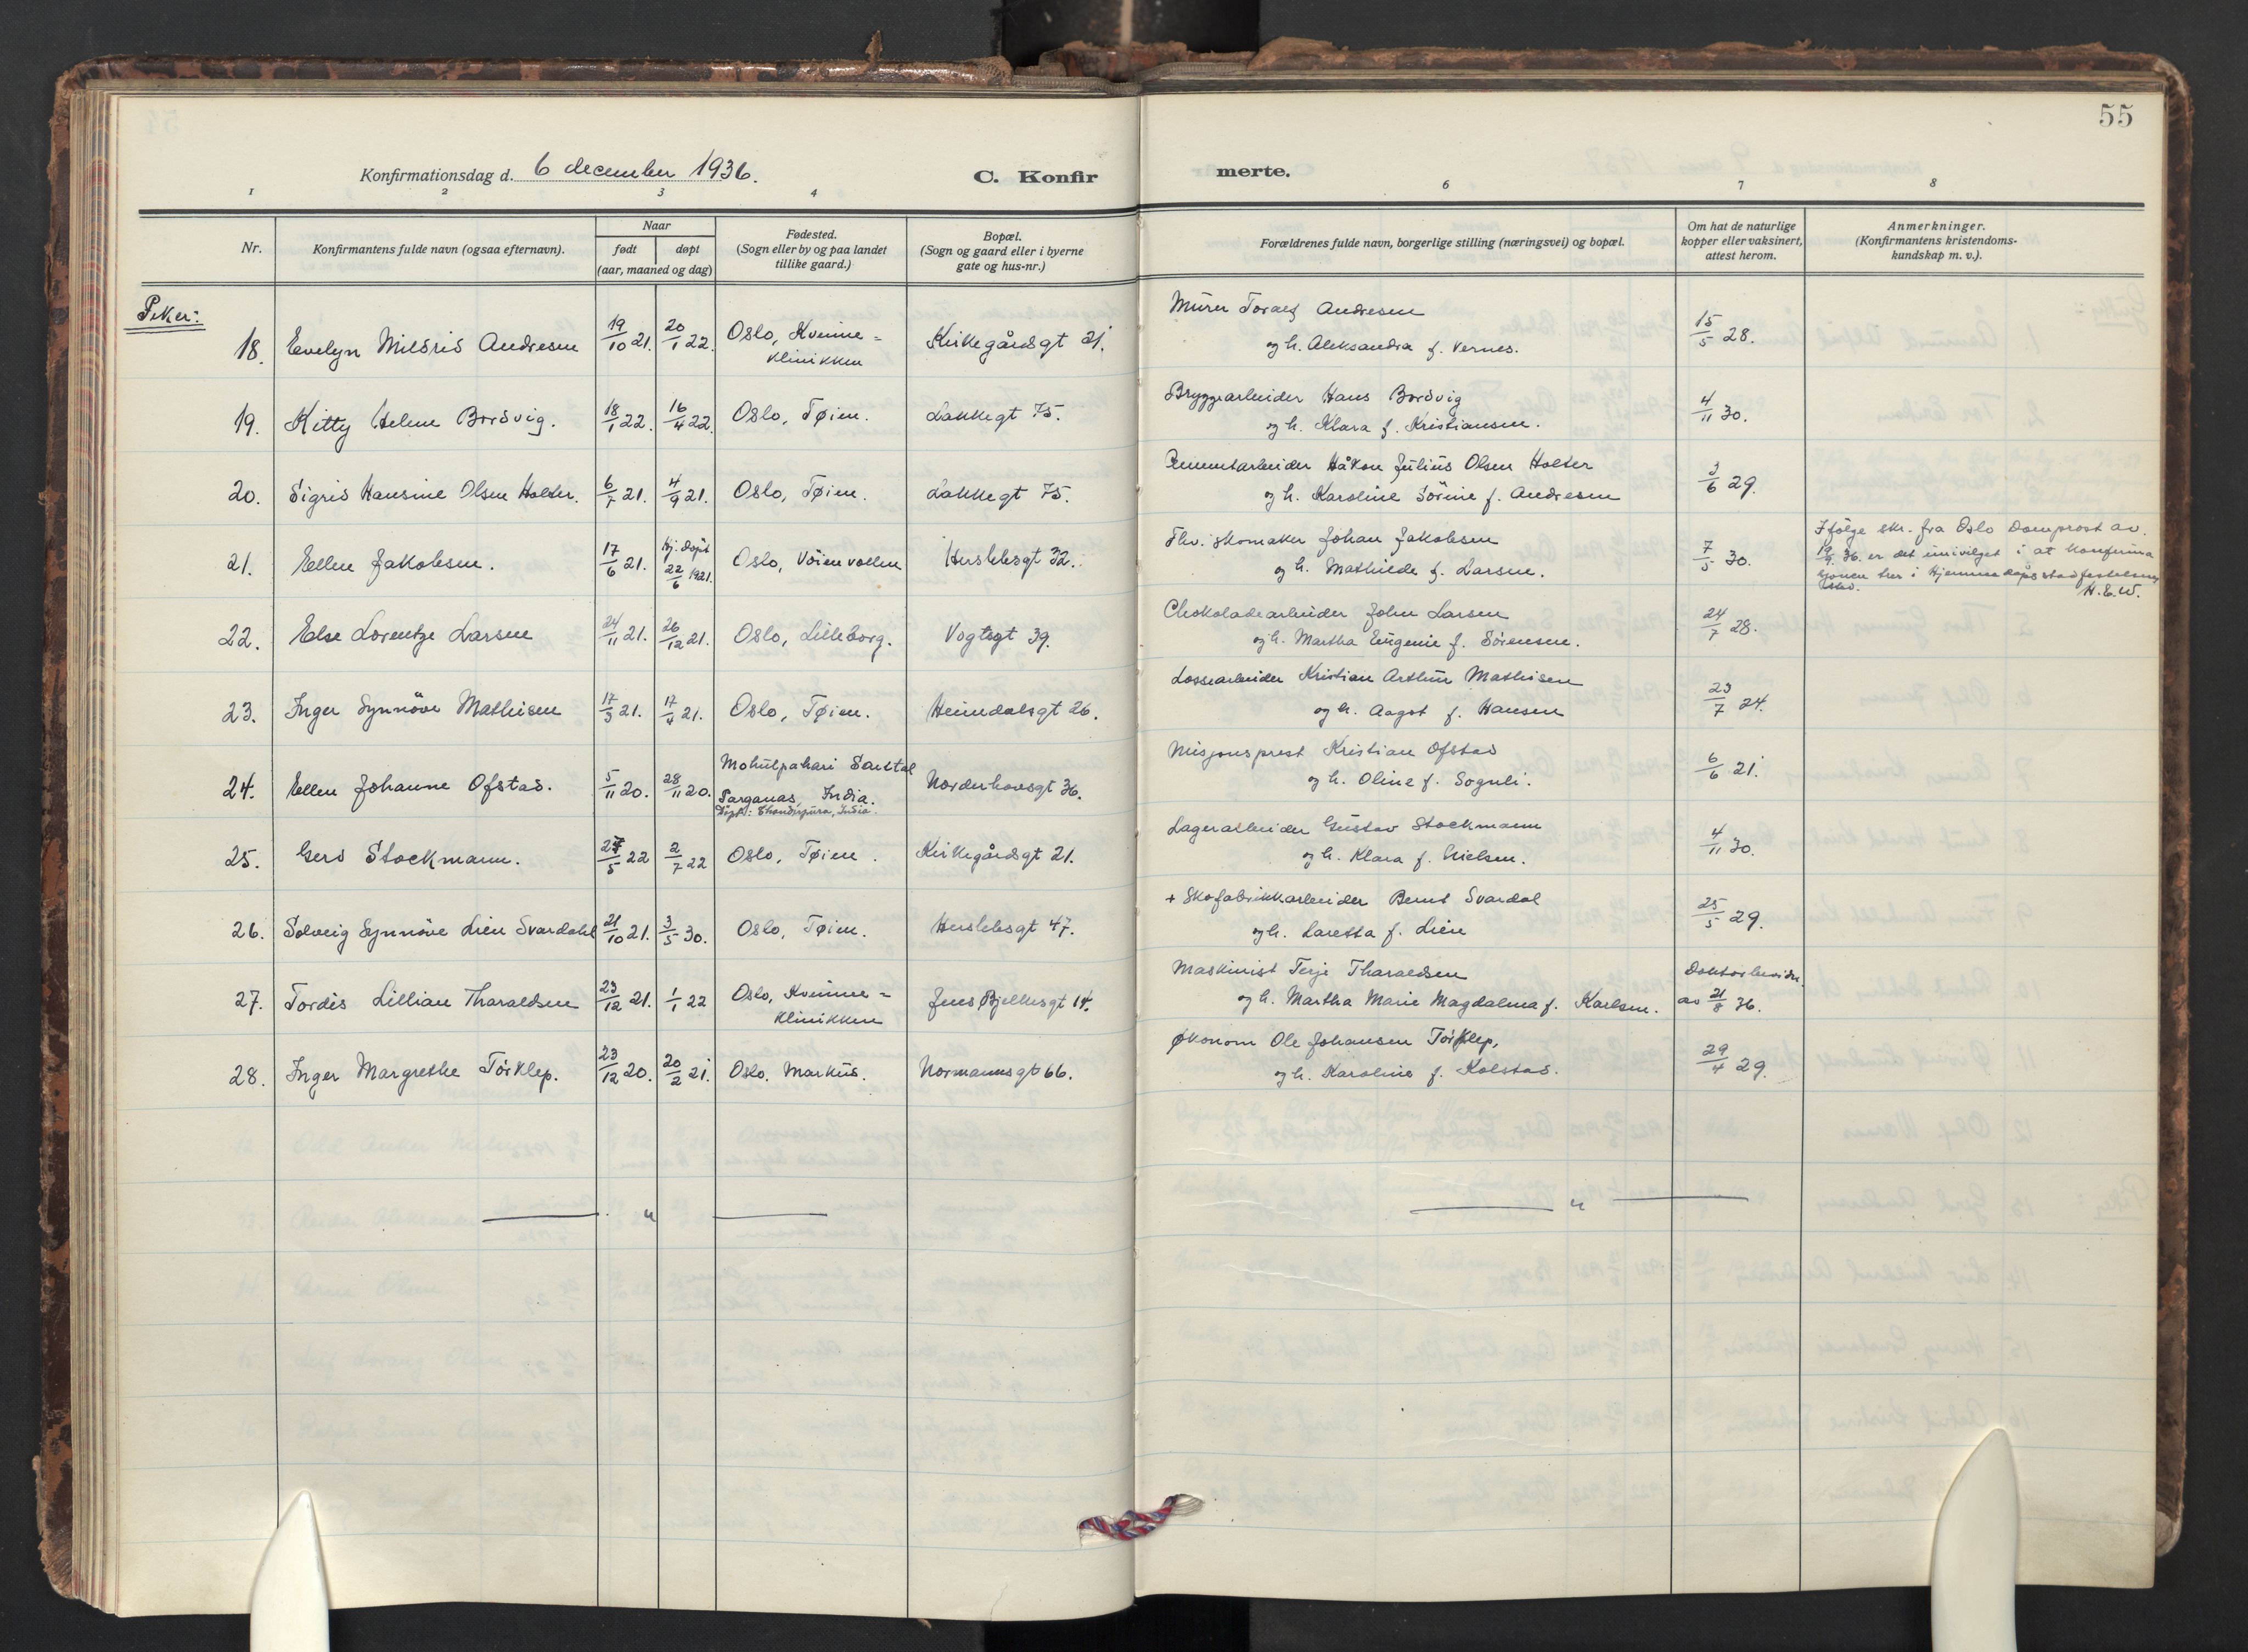 55
Konfirmationsdag d. 6 december 1936.
C. Konfirmerte.
1 2 3 4 6 7 8
Nr.
Konfirmantens fulde navn (ogsaa efternavn).
Naar
født døpt
(aar, maaned og dag)
Fødested.
(Sogn eller by og paa landet
tillike gaard.)
Bopæl.
(Sogn og gaard eller i byerne
gate og hus-nr.)
Forældrenes fulde navn, borgerlige stilling (næringsvei) og bopæl.
Om hat de naturlige
kopper eller vaksinert,
attest herom.
Anmerkninger.
(Konfirmantens kristendoms-
kundskap m. v.).
Piker:
18. Evelyn Mildrid Andresen 19/10 21. 20/1 22. Oslo, Kvinne=
klinikken
Kirkegårdsgt 21.
Murer Toralf Andresen
og h. Aleksandra f. Vernes.
15/5 28.
19. Kitty Helene Bordvig. 18/1 22. 16/4 22. Oslo, Tøien. Lakkegt 75.
Bryggearbeider Hans Bordvig
og h. Klara f. Kristiansen.
4/11 30.
20. Sigrid Hansine Olsen Holter. 6/7 21. 4/9 21. Oslo, Tøien. Lakkegt 75.
Håkon Julius Olsen Holter
og h. Karoline Sörine f. Andresen
3/6 29.
21. Ellen Jakobsen. 17/6 21. Hj. døpt
22/6 1921. Oslo, Vöienvollen Herslebsgt 32.
Fhv. skomaker Johan Jakobsen
og h. Mathilde f. Larsen.
7/5 30.
Ifölge skr. fra Oslo Domprost av
36. er det innvilget i at konfirma
sjonen trer i Hjemmedåpsstadfestelsens
sted. H.E.W.
22. Else Lorentze Larsen 24/11 21. 26/12 21. Oslo, Lilleborg. Vogtsgt 39.
Chokoladearbeider John Larsen
og h. Martha Eugenie f. Sörensen.
24/7 28.
23. Inger Synnöve Mathisen 17/3 21. 17/4 21. Oslo, Tøien. Heimdalsgt 26.
Lossearbeider Kristian Arthur Mathisen
og h. Aagot f. Hansen
23/7 24.
24. Ellen Johanne Ofstad. 5/11 20. 28/11 20. Mohulpahari Santal
Parganas, India.
Döpt: Chondorpura, India.
Norderhovsgt 36.
Misjonsprest Kristian Ofstad
og h. Oline f. Sognli.
6/6 21.
25. Gerd Stockmann. 5 22 2/7 22 Oslo, Tøien. Kirkegårdsgt 21.
Lagerarbeider Gustav Stockmann
og h. Klara f. Nielsen.
4/11 30.
26. Solveig Synnöve Lien Svardahl 21/10 21. 3/5 30. Oslo, Tøien. Herslebsgt 47.
+ Skofabrikkarbeider Bernt Svardal
og h. Laretta f. Lien
25/5 29.
27. Tordis Lillian Tharaldsen 23/12 21. 1/1 22 Oslo, Kvinne=
klinikken
Jens Bjelkesgt 14.
Maskinist Terje Tharaldsen
og h. Martha Marie Magdalena f. Karlsen.
Doktorbevidn.
av 21/8 36.
28. Inger Margrethe Törklep. 23/12 20. 20/2 21. Oslo, Markus. Normannsgt 66.
Økonom Ole Johansen Törklep,
og h. Karoline f. Kolstad.
29/4 29.
—— " ——
—— " ——